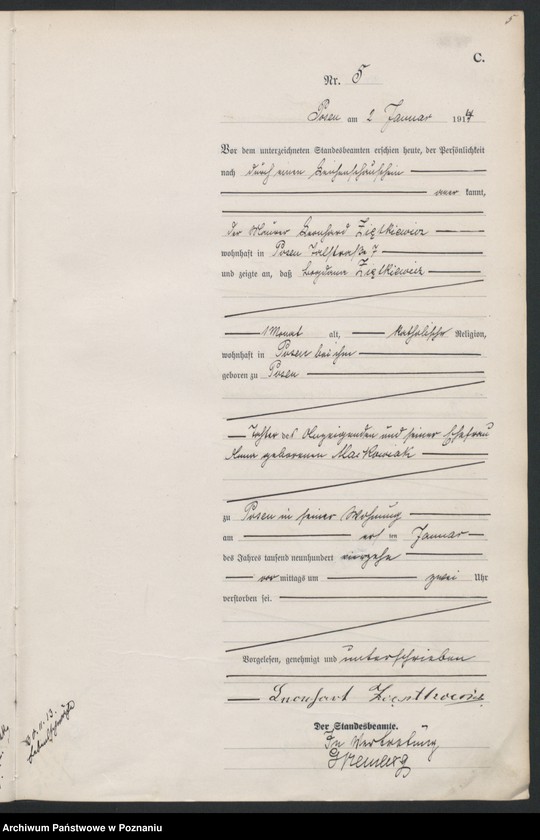 5
C.
Nr. 5
Posen am 2 Januar 1914
Vor dem unterzeichneten Standesbeamten erschien heute, der Persönlichkeit
nach durch einen Leichenschauschein
aner kannt,
der Maurer Bernhard Ziętkiewicz
wohnhaft in Posen Talstraße 7
und zeigte an, daß Bogdana Ziętkiewicz
1 Monat alt, katholischer Religion,
wohnhaft in Posen bei ihm
geboren zu Posen
Tochter des Anzeigenden und seiner Ehefrau
Anna geborenen Maćkowiak
zu Posen in seiner Wohnung
am ersten Januar
des Jahres tausend neunhundert vierzehn
vor mittags um zwei Uhr
verstorben sei.
Vorgelesen, genehmigt und unterschrieben
Der Standesbeamte.
In Vertretung
Archiwum Państwowe w Poznaniu